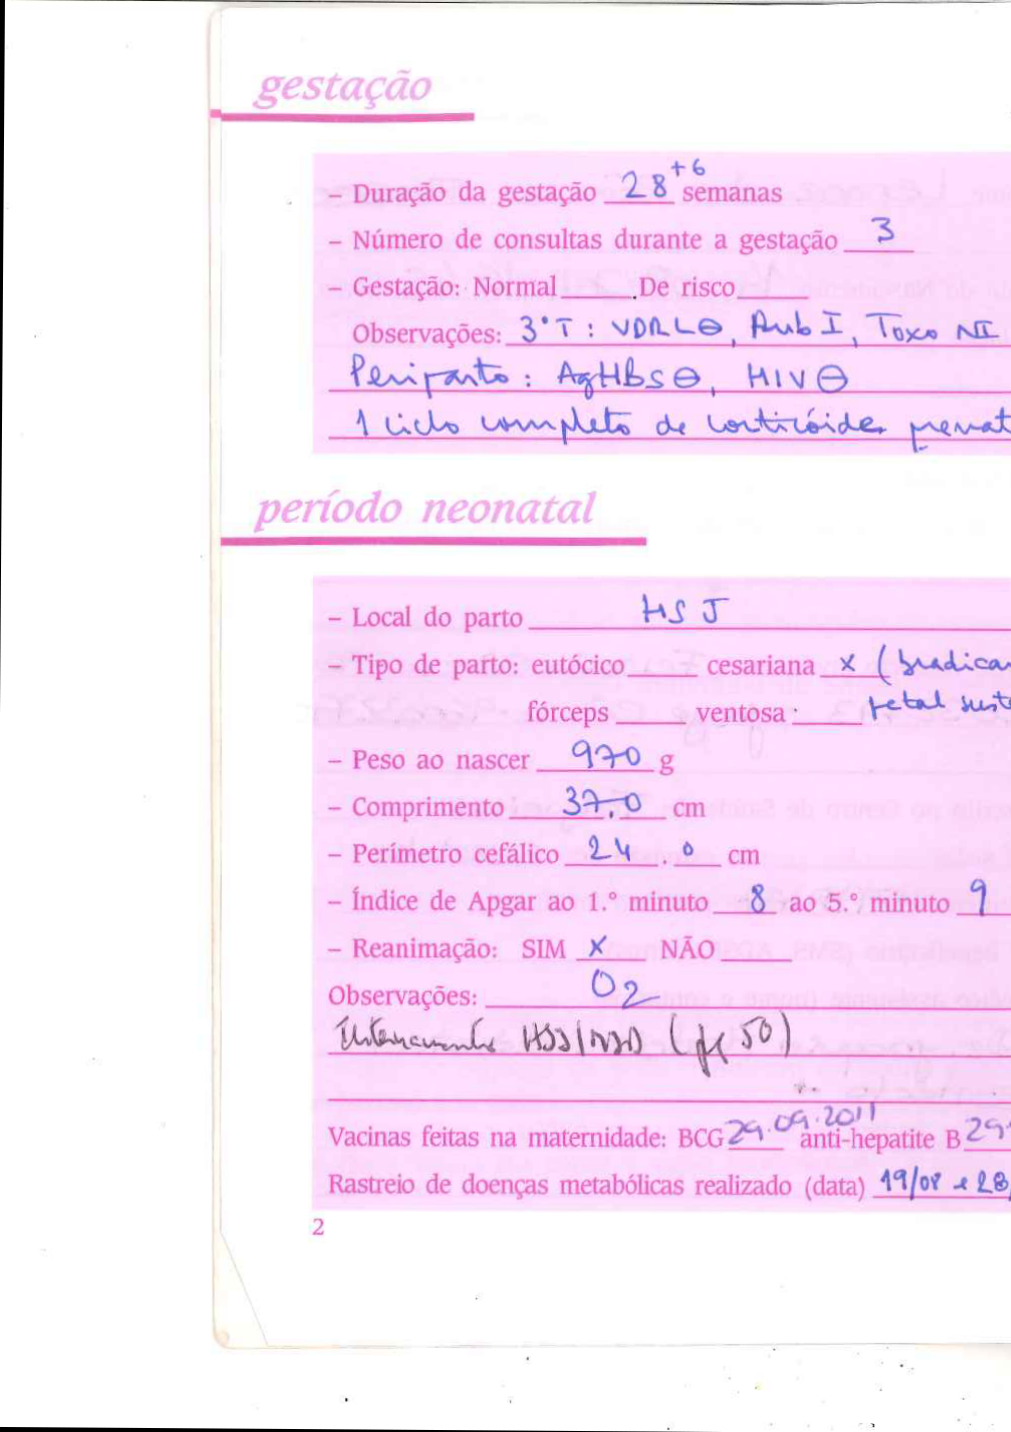 gestação
Duração da gestação 28+6 semanas
– Número de consultas durante a gestação 3
– Gestação: Normal De risco
Observações: 3ºT: VDRL ⊖, Rub I, Toxo NI
Periparto: AgHBs ⊖, HIV ⊖
1 ciclo completo de corticóide prenat
período neonatal
– Local do parto HSJ
– Tipo de parto: eutócico cesariana x (bradicar
fórceps ventosa fetal suste
– Peso ao nascer 970 g
– Comprimento 37.0 cm
– Perímetro cefálico 24.0 cm
– Índice de Apgar ao 1.º minuto 8 ao 5.º minuto 9
– Reanimação: SIM x NÃO
Observações: O2
Internamento (pg 50)
Vacinas feitas na maternidade: BCG 29.09.2011 anti-hepatite B 29
Rastreio de doenças metabólicas realizado (data) 19/08 e 28/
2